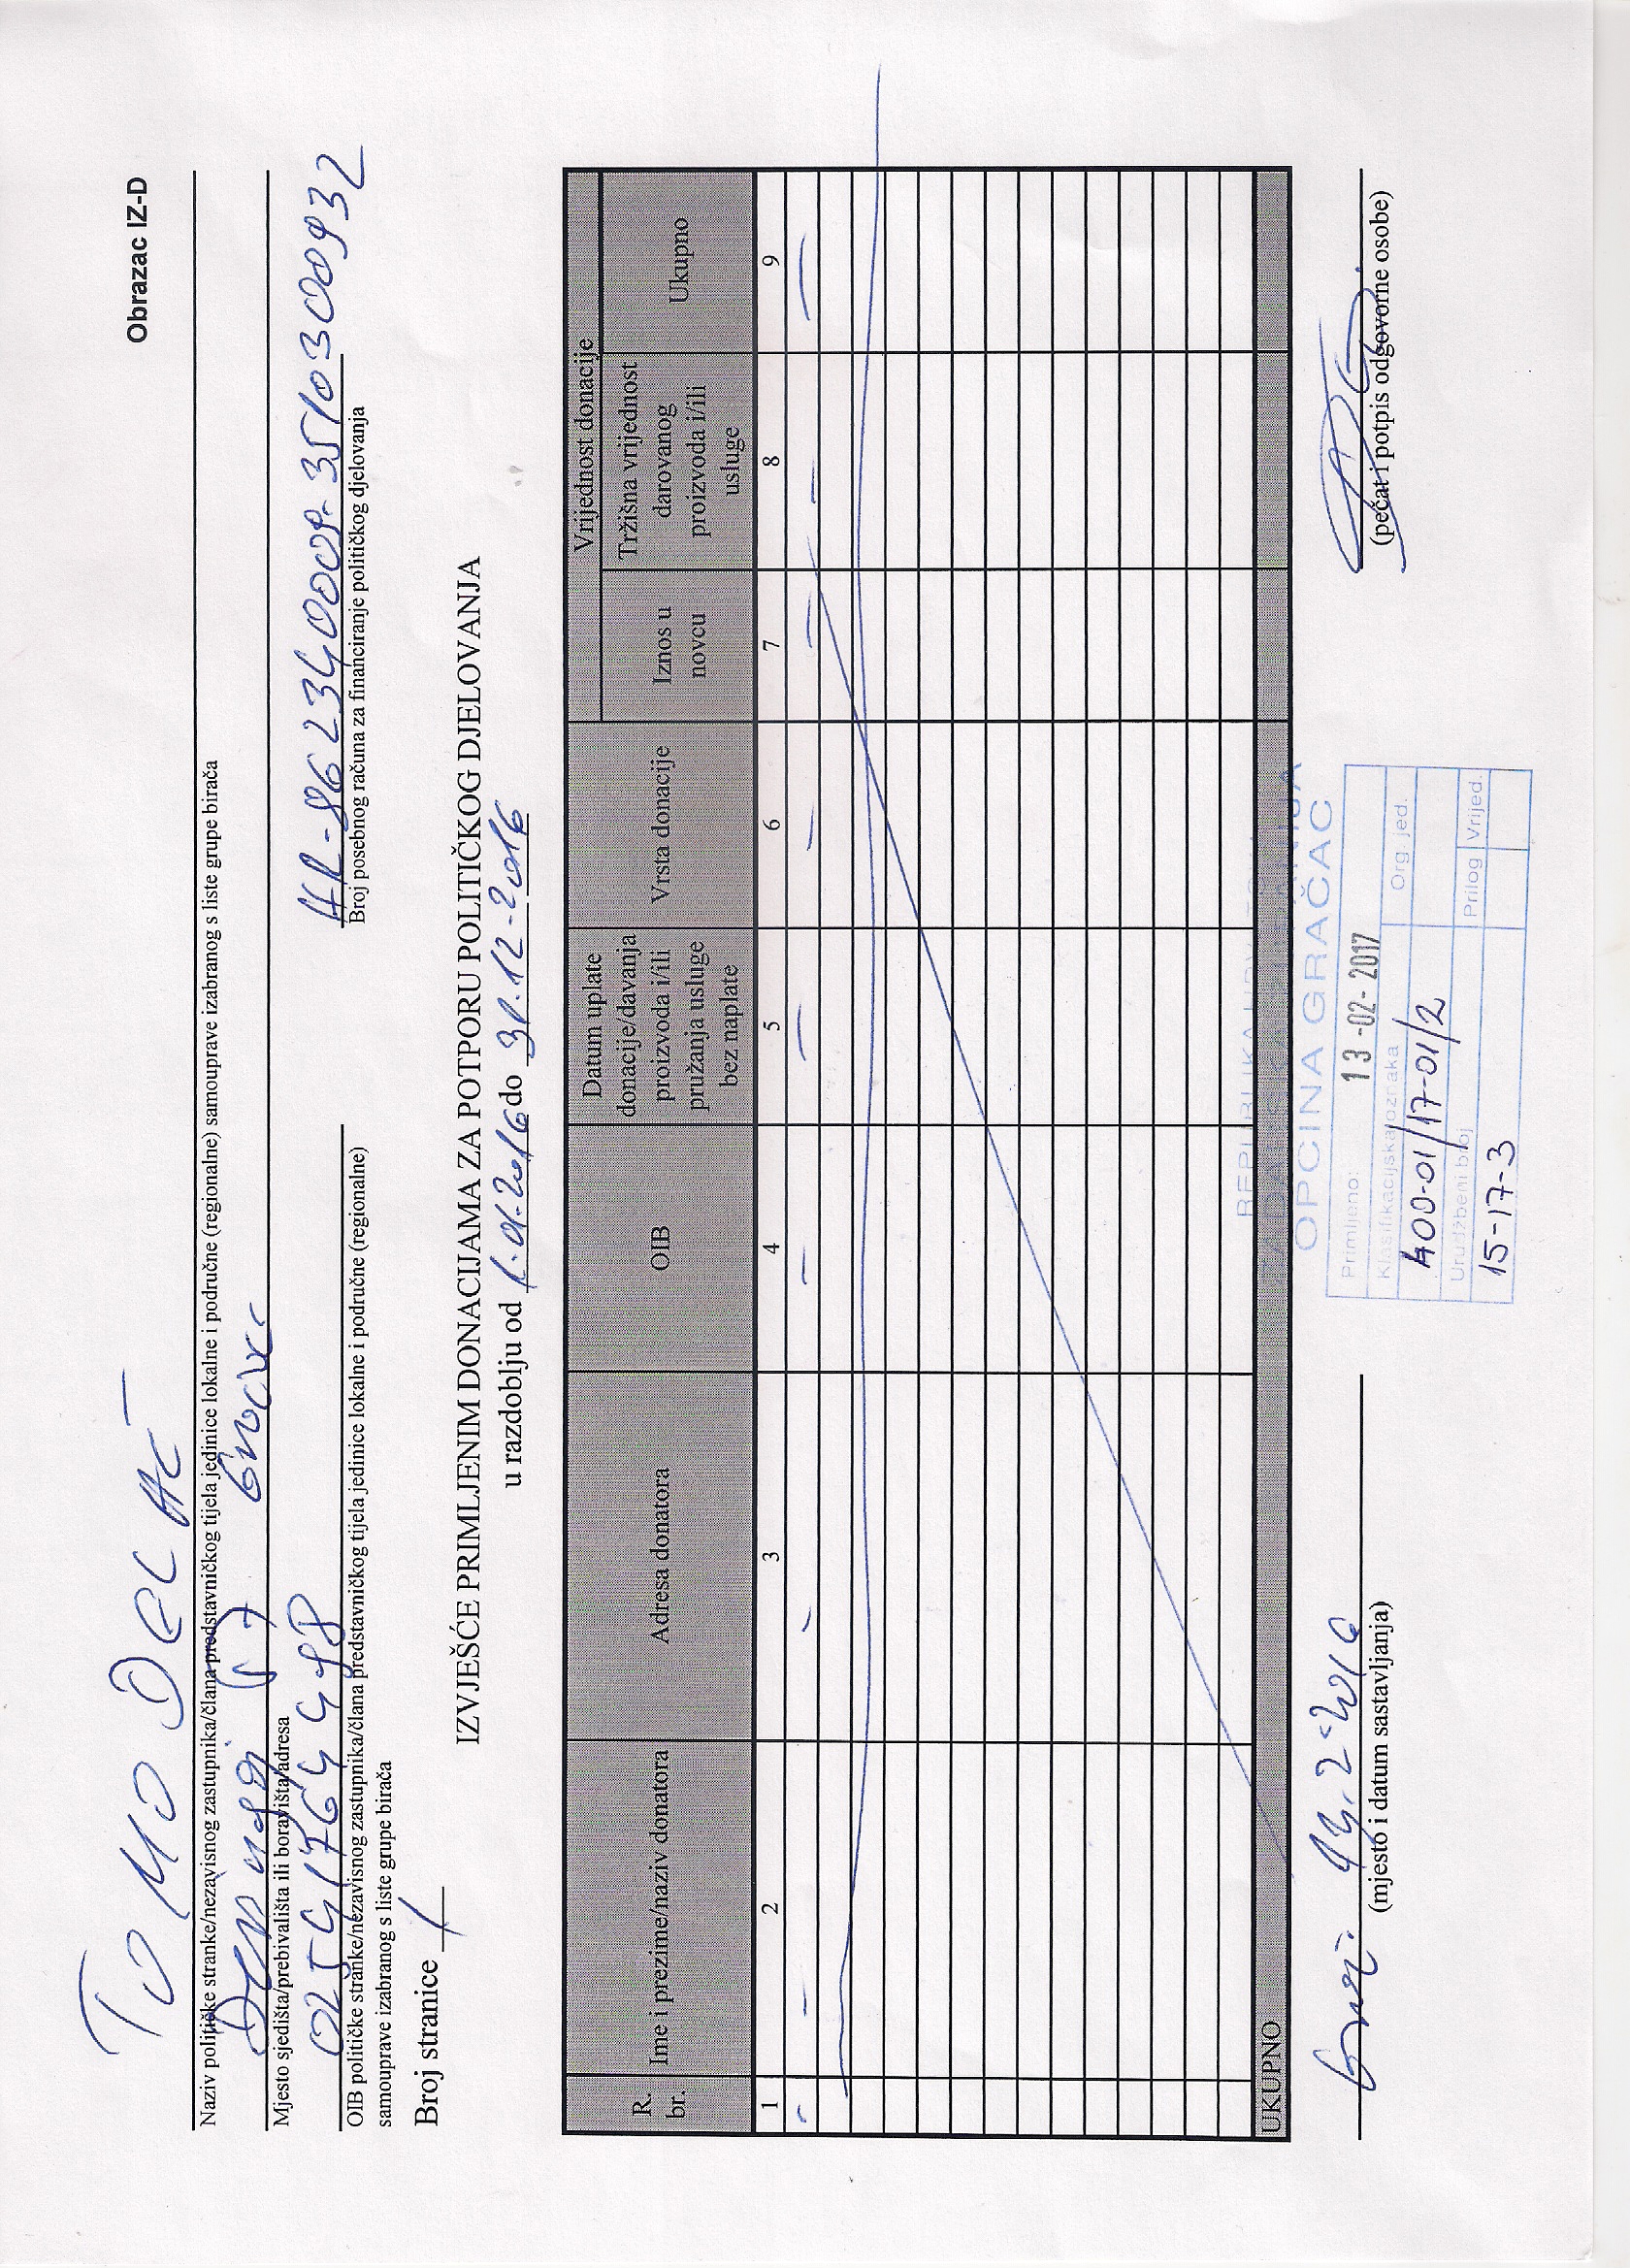 Obrazac IZ-D
TOMO DELAČ
Naziv političke stranke/nezavisnog zastupnika/člana predstavničkog tijela jedinice lokalne i područne (regionalne) samouprave izabranog s liste grupe birača
Mjesto sjedišta/prebivališta ili boravišta/adresa
HR-8623400093510300932
OIB političke stranke/nezavisnog zastupnika/člana predstavničkog tijela jedinice lokalne i područne (regionalne)
samouprave izabranog s liste grupe birača
Broj posebnog računa za financiranje političkog djelovanja
Broj stranice 1
IZVJEŠĆE PRIMLJENIM DONACIJAMA ZA POTPORU POLITIČKOG DJELOVANJA
u razdoblju od 1.01-2016 do 31.12-2016
R. br.
Ime i prezime/naziv donatora
Adresa donatora
OIB
Datum uplate donacije/davanja proizvoda i/ili pružanja usluge bez naplate
Vrsta donacije
Vrijednost donacije
Iznos u novcu
Tržišna vrijednost darovanog proizvoda i/ili usluge
Ukupno
1 2 3 4 5 6 7 8 9
- - - - - - - - -
UKUPNO
REPUBLIKA HRVATSKA
OPĆINA GRAČAC
Primljeno: 13-02-2017
Klasifikacijska oznaka
Org. jed.
400-01/17-01/2
Urudžbeni broj
Prilog
Vrijed.
15-17-3
(mjesto i datum sastavljanja)
(pečat i potpis odgovorne osobe)